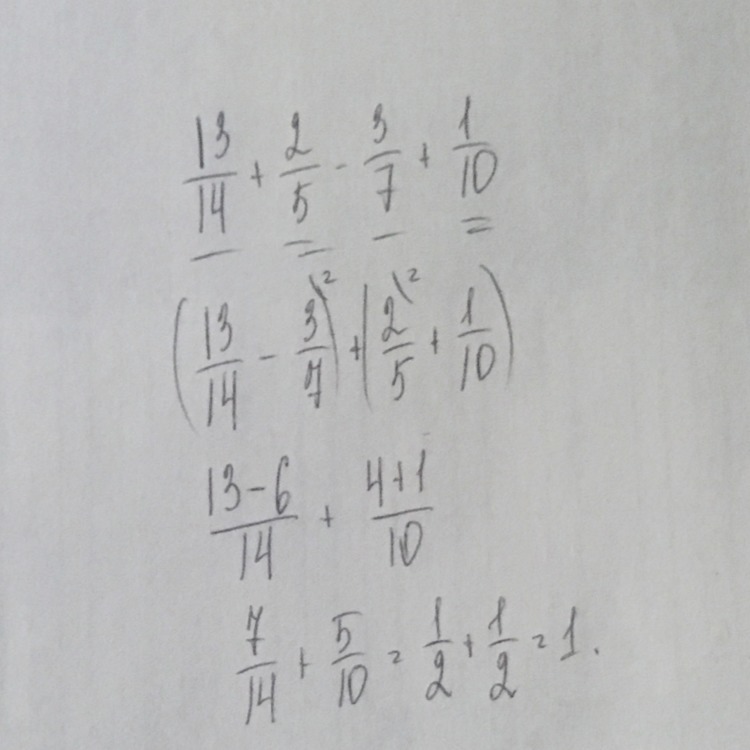 13/14 + 2/5 - 3/7 + 1/10
(13/14 - 3\2/7) + (2\2/5 + 1/10)
13-6/14 + 4+1/10
7/14 + 5/10 = 1/2 + 1/2 = 1.